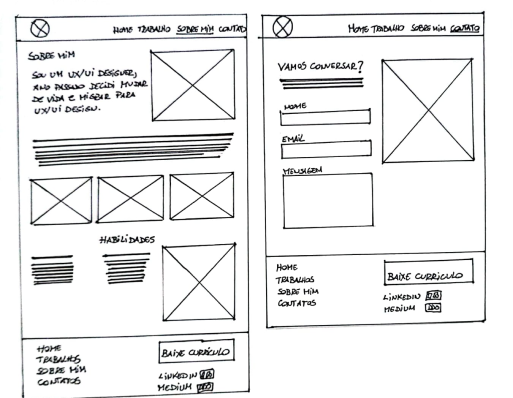 HOME TRABALHO SOBRE MIM CONTATO
SOBRE MIM
SOU UM UX/UI DESIGNER,
ANO PASSADO DECIDI MUDAR
DE VIDA E MIGRAR PARA
UX/UI DESIGN.
HABILIDADES
HOME
TRABALHOS
SOBRE MIM
CONTATOS
BAIXE CURRÍCULO
LINKEDIN
MEDIUM
HOME TRABALHO SOBRE MIM CONTATO
VAMOS CONVERSAR?
NOME
EMAIL
MENSAGEM
HOME
TRABALHOS
SOBRE MIM
CONTATOS
BAIXE CURRICULO
LINKEDIN
MEDIUM